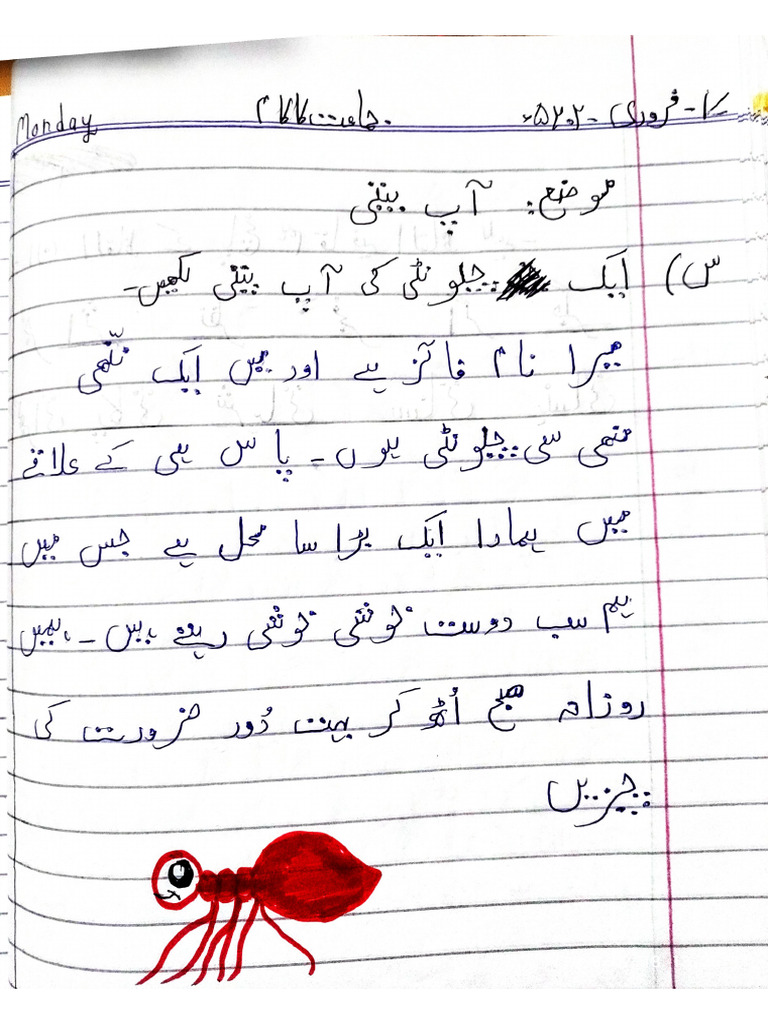 Monday جماعت کا کام ۱۷- فروری - ۲۰۲۵ء
موضع: آپ بیتی
س) ایک چیونٹی کی آپ بیتی لکھیں۔
میرا نام فائز ہے اور میں ایک ننّھی
منھی سی چیونٹی ہوں۔ پاس ہی کے علاقے
میں ہمارا ایک بڑا سا محل ہے جس میں
ہم سب دوست خوشی خوشی رہتے ہیں۔ ہمیں
روزانہ صبح اُٹھ کر بہت دُور ضرورت کی
چیزیں